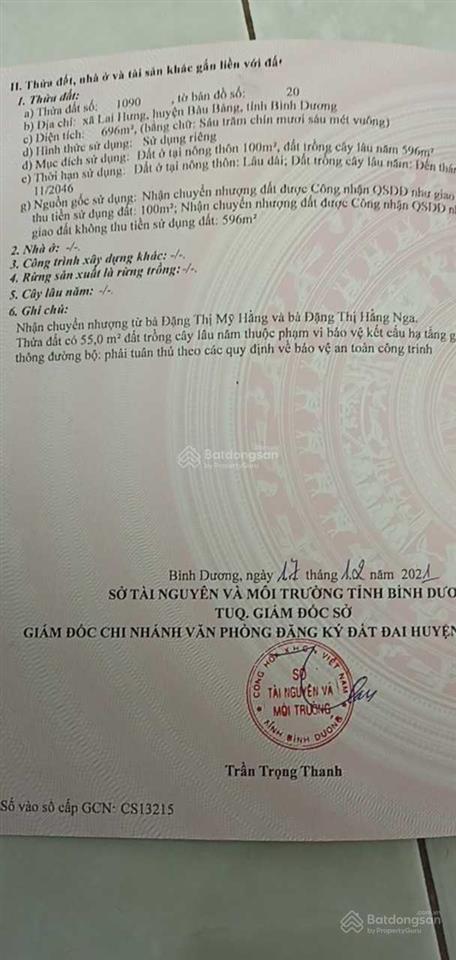 II. Thửa đất, nhà ở và tài sản khác gắn liền với đất
1. Thửa đất:
a) Thửa đất số: 1090 , tờ bản đồ số: 20
b) Địa chỉ: xã Lai Hưng, huyện Bàu Bàng, tỉnh Bình Dương
c) Diện tích: 696m², (bằng chữ: Sáu trăm chín mươi sáu mét vuông)
d) Hình thức sử dụng: Sử dụng riêng
đ) Mục đích sử dụng: Đất ở tại nông thôn 100m², đất trồng cây lâu năm 596m²
e) Thời hạn sử dụng: Đất ở tại nông thôn: Lâu dài; Đất trồng cây lâu năm: Đến thán
11/2046
g) Nguồn gốc sử dụng: Nhận chuyển nhượng đất được Công nhận QSDĐ như giao
thu tiền sử dụng đất: 100m²; Nhận chuyển nhượng đất được Công nhận QSDĐ nh
giao đất không thu tiền sử dụng đất: 596m²
2. Nhà ở: -/-.
3. Công trình xây dựng khác: -/-.
4. Rừng sản xuất là rừng trồng: -/-.
5. Cây lâu năm: -/-.
6. Ghi chú:
Nhận chuyển nhượng từ bà Đặng Thị Mỹ Hằng và bà Đặng Thị Hằng Nga.
Thửa đất có 55,0 m² đất trồng cây lâu năm thuộc phạm vi bảo vệ kết cấu hạ tầng g
thông đường bộ: phải tuân thủ theo các quy định về bảo vệ an toàn công trình
Batdongsan
by PropertyGuru
Bình Dương, ngày 17 tháng 12 năm 2021
SỞ TÀI NGUYÊN VÀ MÔI TRƯỜNG TỈNH BÌNH DƯƠ
TUQ. GIÁM ĐỐC SỞ
GIÁM ĐỐC CHI NHÁNH VĂN PHÒNG ĐĂNG KÝ ĐẤT ĐAI HUYỆN
CỘNG HÒA X.H.C.N VIỆT NAM
SỞ
TÀI NGUYÊN VÀ
MÔI TRƯỜNG
TỈNH BÌNH DƯƠNG
Trần Trọng Thanh
Số vào sổ cấp GCN: CS13215
Batdongsan
by PropertyGuru